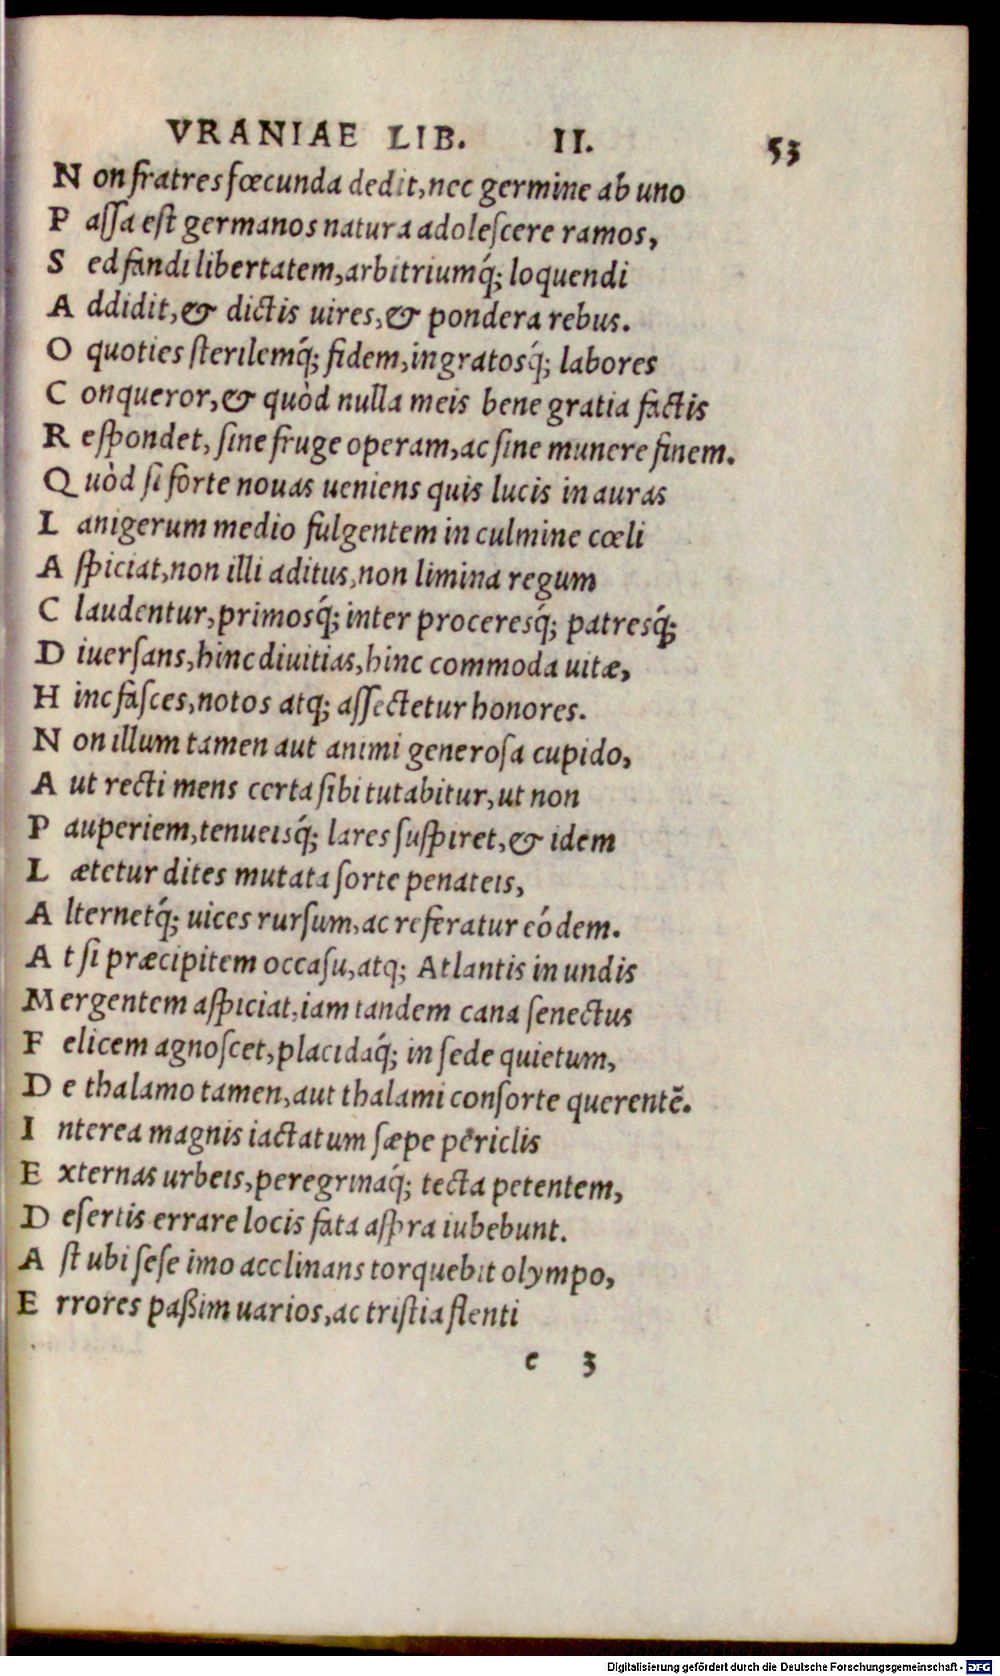 VRANIAE LIB. II. 53
N on fratres fœcunda dedit, nec germine ab uno
P aſſa eſt germanos natura adoleſcere ramos,
S ed fandi libertatem, arbitriumq́; loquendi
A ddidit, & dictis uires, & pondera rebus.
O quoties ſterilemq́; fidem, ingratosq́; labores
C onqueror, & quòd nulla meis bene gratia factis
R eſpondet, ſine fruge operam, ac ſine munere finem.
Q uòd ſi forte nouas ueniens quis lucis in auras
L anigerum medio fulgentem in culmine cœli
A ſpiciat, non illi aditus, non limina regum
C laudentur, primosq́; inter proceresq́; patresq́;
D iuerſans, hinc diuitias, hinc commoda uitæ,
H inc faſces, notos atq; aſſectetur honores.
N on illum tamen aut animi generoſa cupido,
A ut recti mens certa ſibi tutabitur, ut non
P auperiem, tenueisq́; lares ſuſpiret, & idem
L ætetur dites mutata ſorte penateis,
A lternetq́; uices rurſum, ac referatur eódem.
A t ſi præcipitem occaſu, atq; Atlantis in undis
M ergentem aſpiciat, iam tandem cana ſenectus
F elicem agnoſcet, placidaq́; in ſede quietum,
D e thalamo tamen, aut thalami conſorte querentē.
I nterea magnis iactatum ſæpe periclis
E xternas urbeis, peregrinaq́; tecta petentem,
D eſertis errare locis fata aſpra iubebunt.
A ſt ubi ſeſe imo acclinans torquebit olympo,
E rrores paßim uarios, ac triſtia flenti
e 3
Digitalisierung gefördert durch die Deutsche Forschungsgemeinschaft - DFG